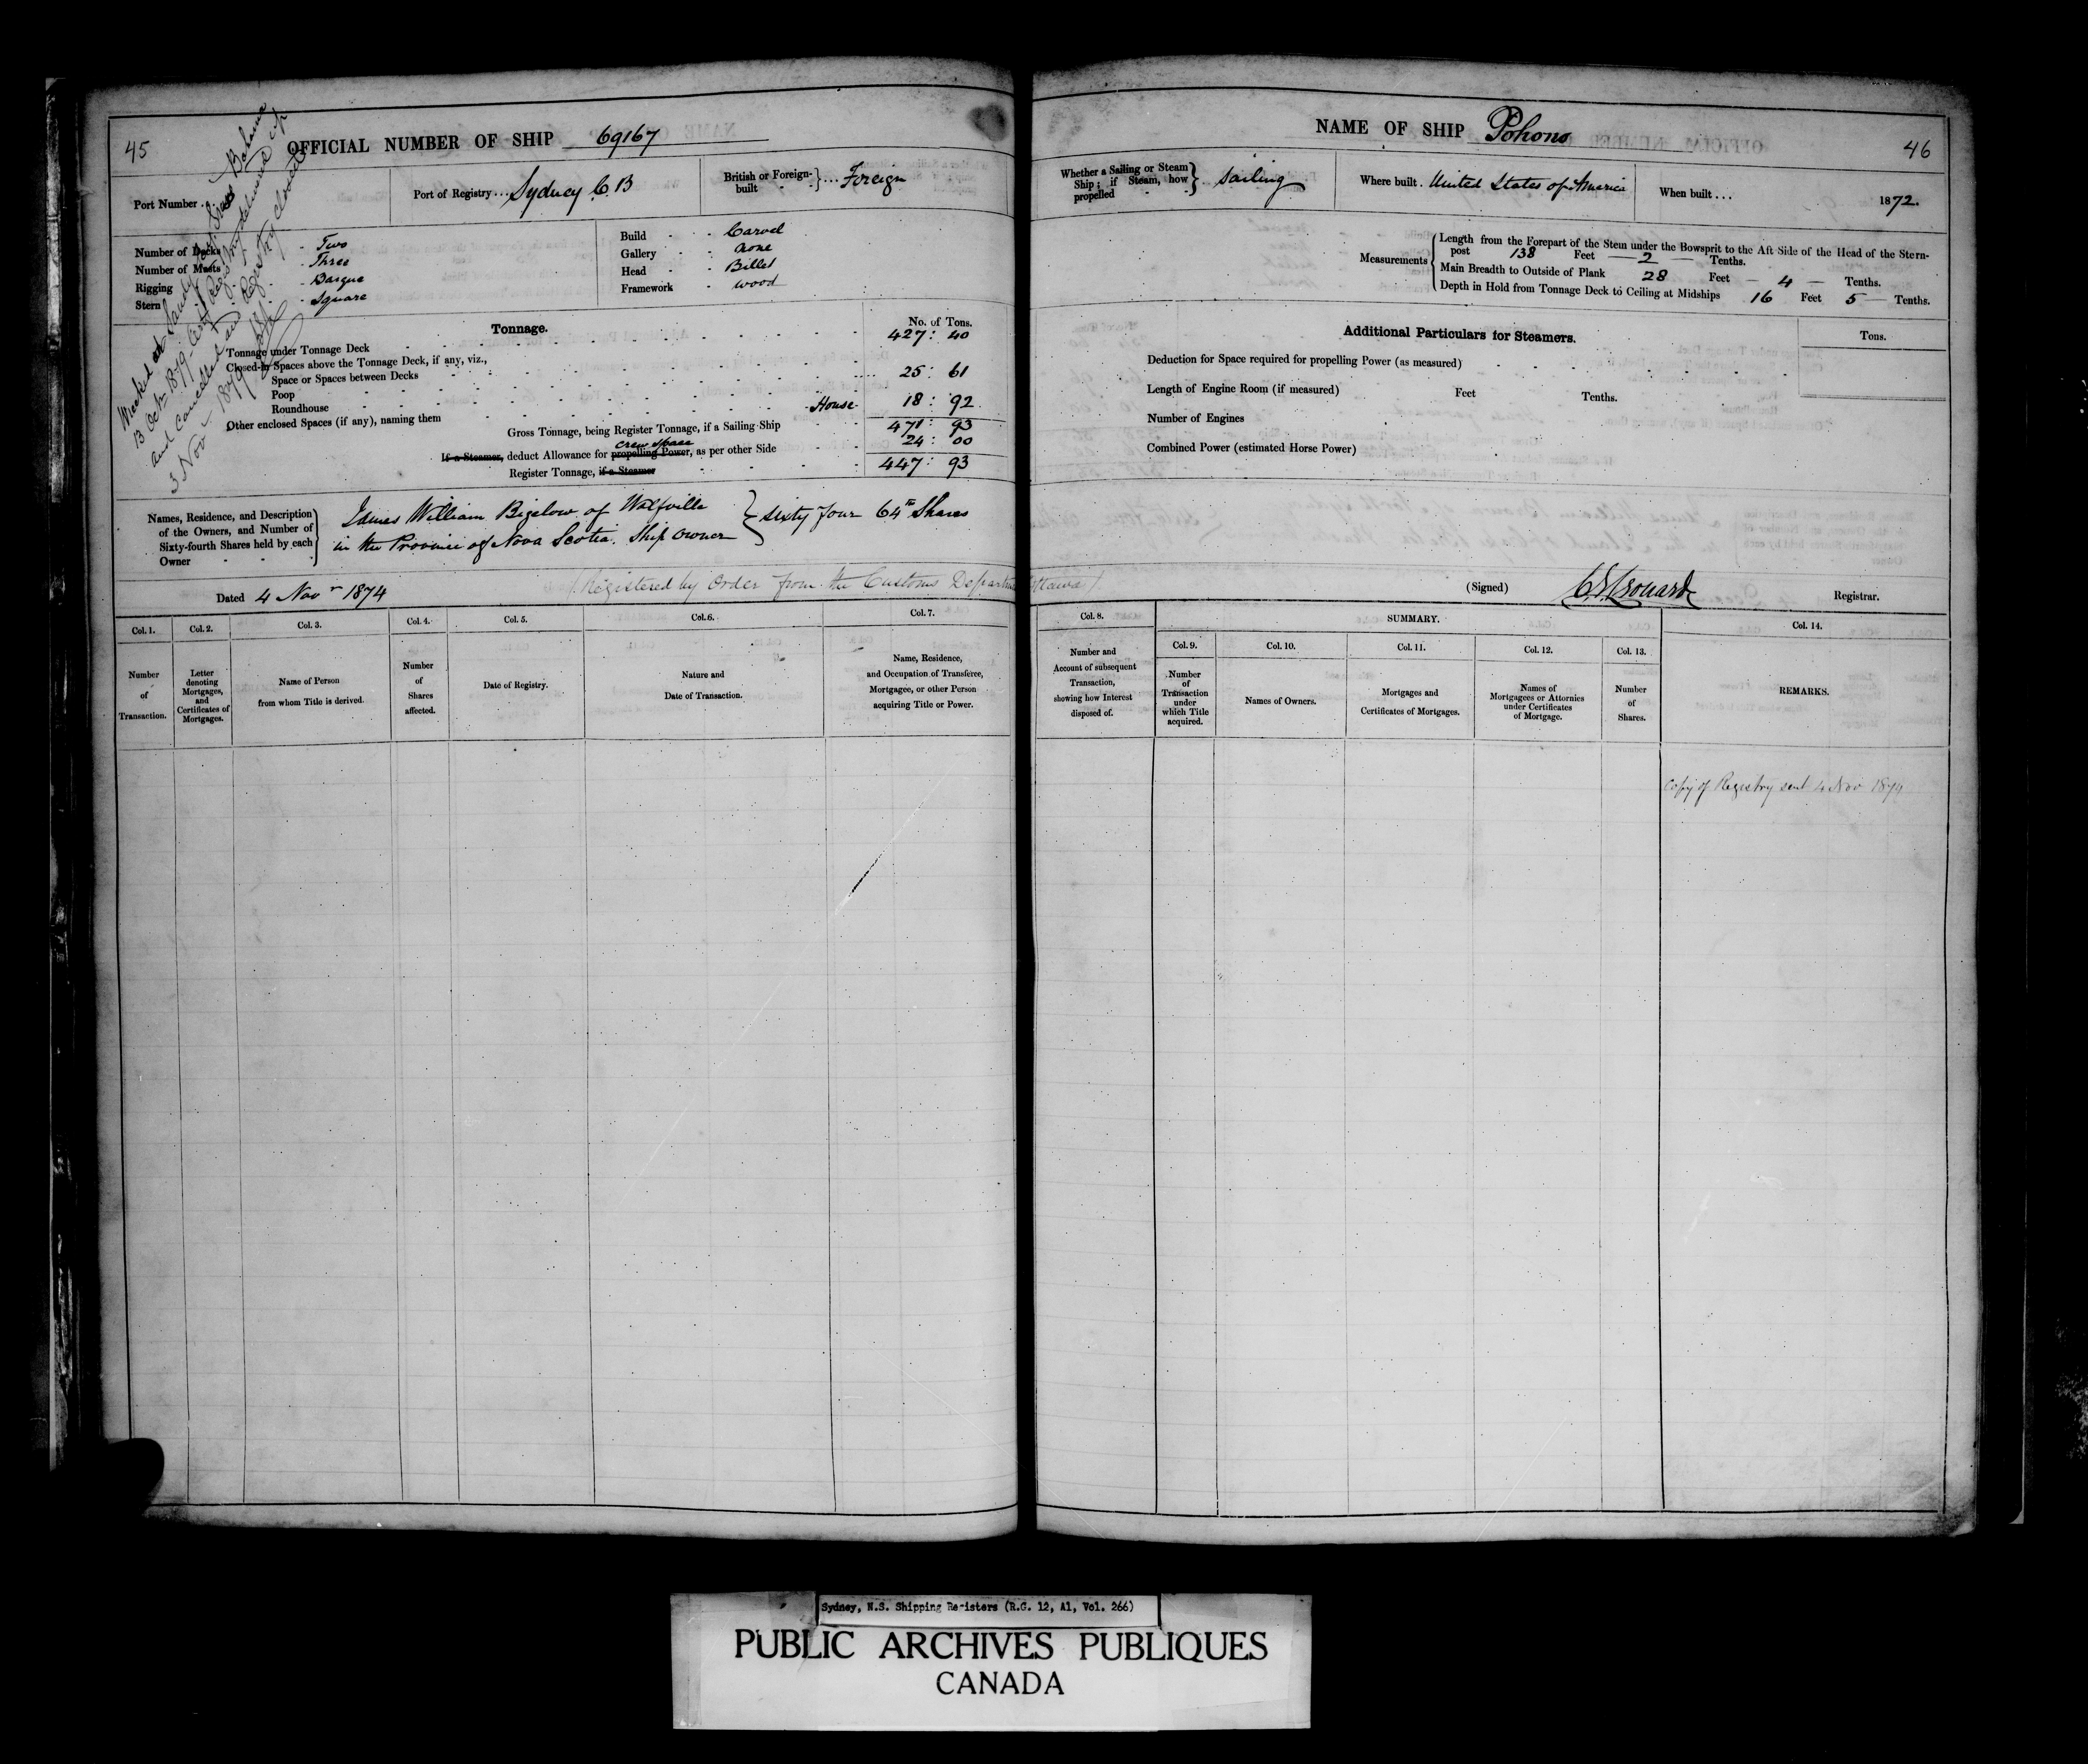 45
OFFICIAL NUMBER OF SHIP 69167
Port Number
Port of Registry... Sydney C B
British or Foreign-built }... Foreign
Number of Decks - Two
Number of Masts - Three
Rigging - Barque
Stern - Square
Build - Carvel
Gallery - none
Head - Billet
Framework - wood
Tonnage.
No. of Tons.
Tonnage under Tonnage Deck 427 : 40
Closed-in Spaces above the Tonnage Deck, if any, viz.,
Space or Spaces between Decks
Poop 25 : 61
Roundhouse
Other enclosed Spaces (if any), naming them House 18 : 92
Gross Tonnage, being Register Tonnage, if a Sailing Ship 471 : 93
crew space
If a Steamer, deduct Allowance for propelling Power, as per other Side 24 : 00
Register Tonnage, if a Steamer 447 : 93
Wrecked at Bahama
13 Oct 1879. Cert Registry delivered up
and Cancelled and Registry closed
3 Nov - 1879
Names, Residence, and Description
of the Owners, and Number of
Sixty-fourth Shares held by each
Owner
William Bigelow of Wolfville
in the Province of Nova Scotia. Ship owner } sixty four 64th Shares
Dated 4 Novr 1874
(Registered by Order from the Customs Department Ottawa)
Col. 1.
Number
of
Transaction.
Col. 2.
Letter
denoting
Mortgages,
and
Certificates of
Mortgages.
Col. 3.
Name of Person
from whom Title is derived.
Col. 4.
Number
of
Shares
affected.
Col. 5.
Date of Registry.
Col. 6.
Nature and
Date of Transaction.
Col. 7.
Name, Residence,
and Occupation of Transferee,
Mortgagee, or other Person
acquiring Title or Power.
NAME OF SHIP Pohono
46
Whether a Sailing or Steam
Ship ; if Steam, how
propelled } Sailing
Where built . United States of America
When built ... 1872.
Measurements
Length from the Forepart of the Stem under the Bowsprit to the Aft Side of the Head of the Stern-
post 138 Feet — 2 — Tenths.
Main Breadth to Outside of Plank 28 Feet — 4 — Tenths.
Depth in Hold from Tonnage Deck to Ceiling at Midships 16 Feet 5 — Tenths.
Additional Particulars for Steamers.
Tons.
Deduction for Space required for propelling Power (as measured)
Length of Engine Room (if measured) Feet Tenths.
Number of Engines
Combined Power (estimated Horse Power)
(Signed) Registrar.
Col. 8.
Number and
Account of subsequent
Transaction,
showing how Interest
disposed of.
SUMMARY.
Col. 9.
Number
of
Transaction
under
which Title
acquired.
Col. 10.
Names of Owners.
Col. 11.
Mortgages and
Certificates of Mortgages.
Col. 12.
Names of
Mortgagees or Attornies
under Certificates
of Mortgage.
Col. 13.
Number
of
Shares.
Col. 14.
REMARKS.
Copy of Registry sent 4 Nov 1874
Sydney, N.S. Shipping Registers (R.G. 12, A1, Vol. 266)
PUBLIC ARCHIVES PUBLIQUES
CANADA